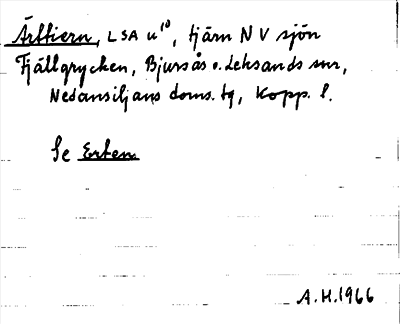 Ärttiern, LSA u¹⁰, tjärn NV sjön
Fjällgrycken, Bjursås o. Leksands snr,
Nedansiljans doms. tg, Kopp. l.
Se Erten
A.H. 1966